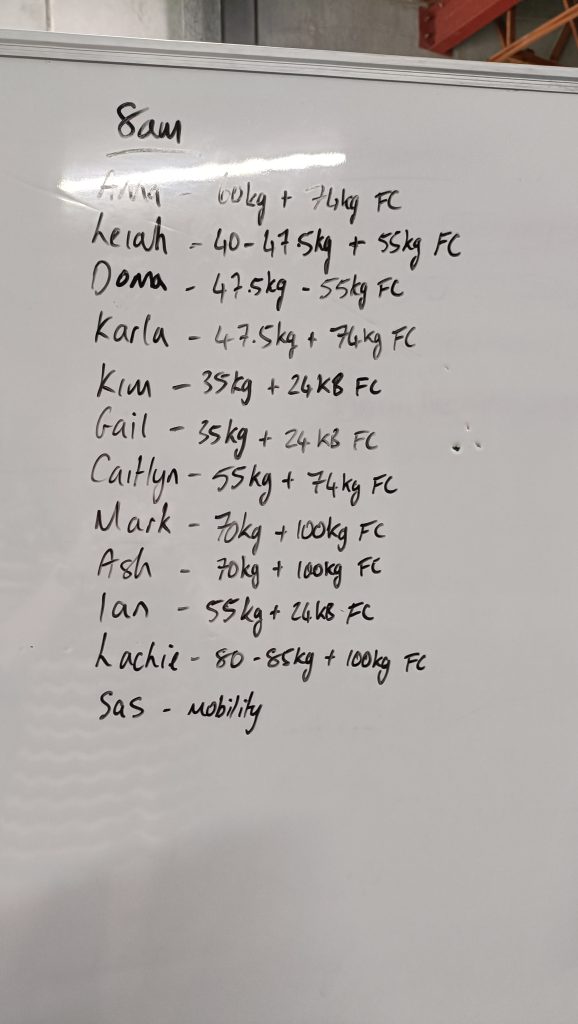 8am
Anna - 60kg + 74kg FC
Leiah - 40-47.5kg + 55kg FC
Donna - 47.5kg - 55kg FC
Karla - 47.5kg + 74kg FC
Kim - 35kg + 24KB FC
Gail - 35kg + 24KB FC
Caitlyn - 55kg + 74kg FC
Mark - 70kg + 100kg FC
Ash - 70kg + 100kg FC
Ian - 55kg + 24KB FC
Lachie - 80-85kg + 100kg FC
Sas - Mobility